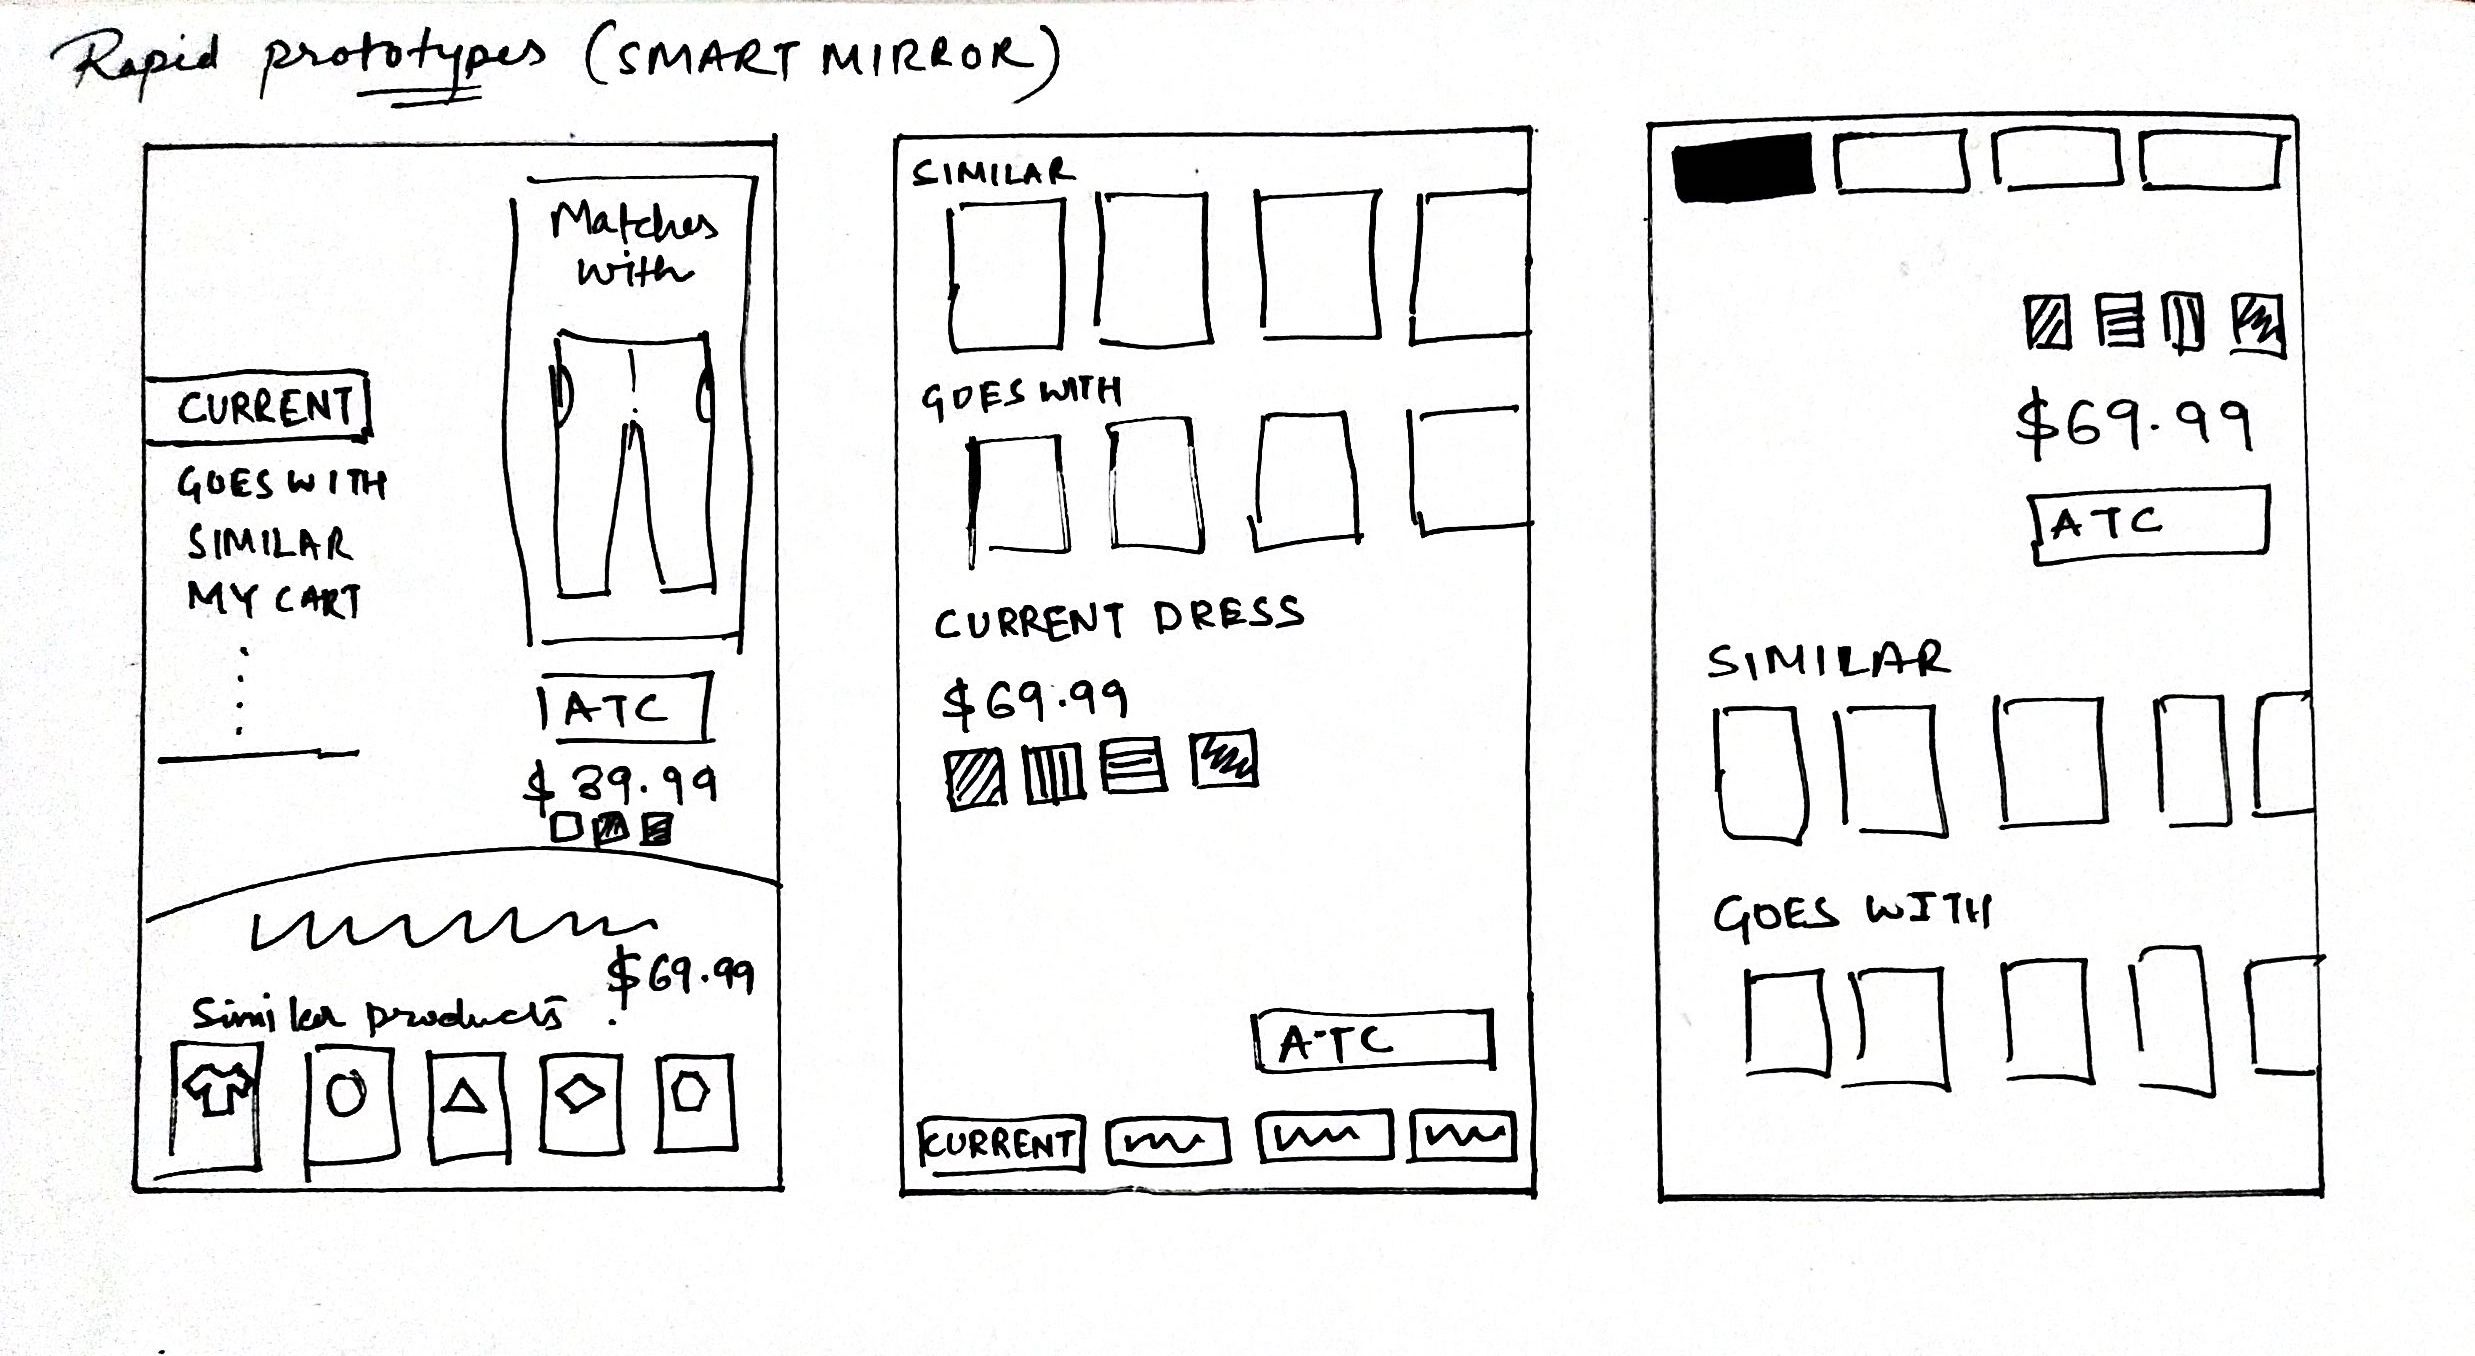 Rapid prototypes (SMART MIRROR)
Matches
with
CURRENT
GOES WITH
SIMILAR
MY CART
ATC
$39.99
$69.99
Similar products
SIMILAR
GOES WITH
CURRENT DRESS
$69.99
ATC
CURRENT
$69.99
ATC
SIMILAR
GOES WITH